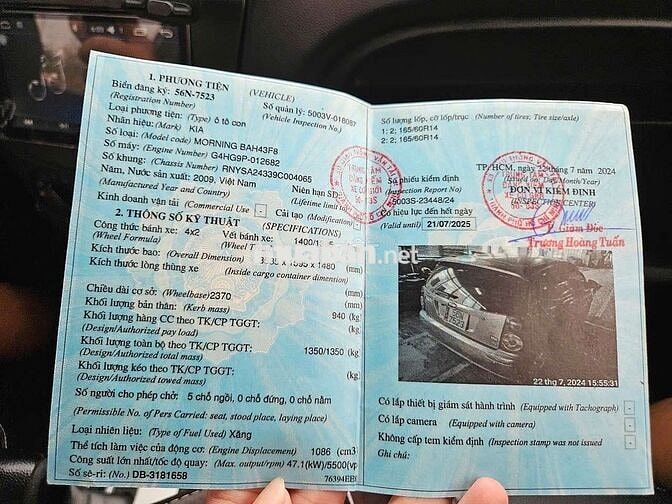 1. PHƯƠNG TIỆN (VEHICLE)
Biển đăng ký: 56N-7523 Số quản lý: 5003V-018087
(Registration Number) (Vehicle Inspection No.)
Loại phương tiện: (Type) ô tô con
Nhãn hiệu: (Mark) KIA
Số loại: (Model code) MORNING BAH43F8
Số máy: (Engine Number) G4HG9P-012682
Số khung: (Chassis Number) RNYSA24339C004065
Năm, Nước sản xuất: 2009, Việt Nam Niên hạn SD
(Manufactured Year and Country) (Lifetime limit
Kinh doanh vận tải (Commercial Use) - Cải tạo (Modification)
2. THÔNG SỐ KỸ THUẬT (SPECIFICATIONS)
Công thức bánh xe: 4x2 Vết bánh xe: 1400/
(Wheel Formula) (Wheel T (mm)
Kích thước bao: (Overall Dimension) x 1595 x 1480 (mm)
Kích thước lòng thùng xe
(Inside cargo container dimension) (mm)
Chiều dài cơ sở: (Wheelbase) 2370 (mm)
Khối lượng bản thân: (Kerb mass) 940 (kg)
Khối lượng hàng CC theo TK/CP TGGT: (kg)
(Design/Authorized pay load)
Khối lượng toàn bộ theo TK/CP TGGT: 1350/1350 (kg)
(Design/Authorized total mass)
Khối lượng kéo theo TK/CP TGGT: (kg)
(Design/Authorized towed mass)
Số người cho phép chở: 5 chỗ ngồi, 0 chỗ đứng, 0 chỗ nằm
(Permissible No. of Pers Carried: seat, stood place, laying place)
Loại nhiên liệu: (Type of Fuel Used) Xăng
Thể tích làm việc của động cơ: (Engine Displacement) 1086 (cm3
Công suất lớn nhất/tốc độ quay: (Max. output/rpm) 47.1(kW)/5500(vp
Số sê-ri: (No.) DB-3181658
Số lượng lốp, cỡ lốp/trục (Number of tires; Tire size/axle)
1: 2; 165/60R14
2: 2; 165/60R14
Số phiếu kiểm định TP.HCM, ngày 22 tháng 7 năm 2024
(Inspection Report No) (Issued on: Day/Month/Year)
5003S-23448/24 ĐƠN VỊ KIỂM ĐỊNH
(INSPECTION CENTER)
Có hiệu lực đến hết ngày
Valid until) 21/07/2025 Giám Đốc
Trương Hoàng Tuấn
.net
22 thg 7, 2024 15:55:31
Có lắp thiết bị giám sát hành trình (Equipped with Tachograph) -
Có lắp camera (Equipped with camera) -
Không cấp tem kiểm định (Inspection stamp was not issued -
Ghi chú: